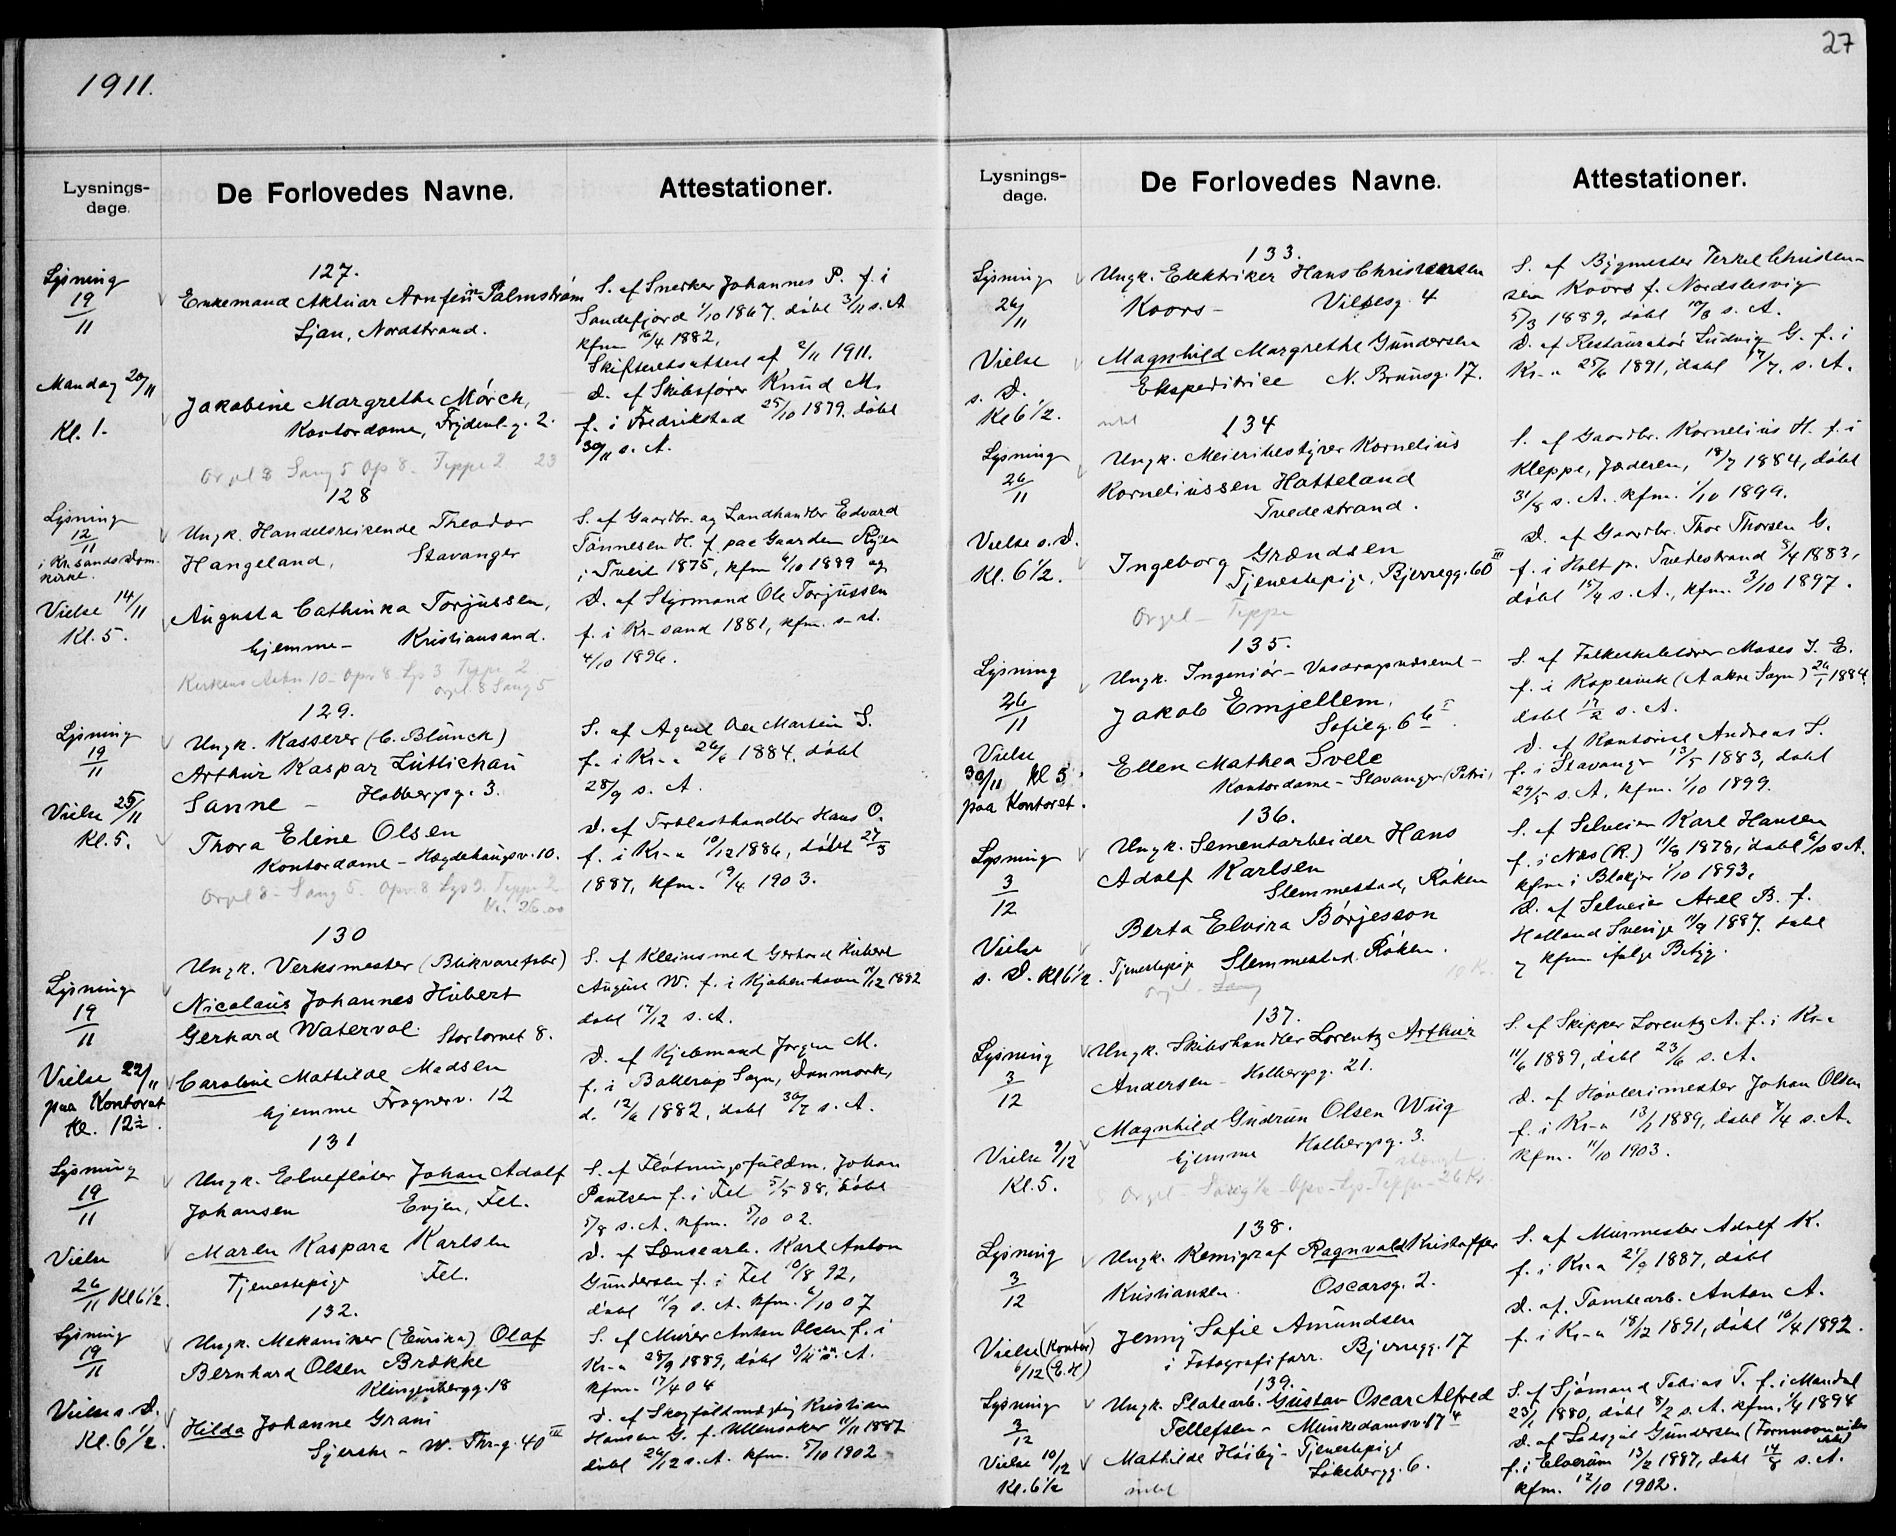 27
1911.
Lysnings-
dage.
De Forlovedes Navne.
Attestationer.
Lysning
19/11
Mandag 20/11
Kl. 1.
127.
Enkemand Aktuar Arnfinn Palmstrøm
Ljan, Nordstrand.
Jakobine Margrethe Mörch,
Kontordame, Frydenl.g. 2.
Orgel 8 Sang 5 Op 8. Teppe 2 23
S. af Snedker Johannes P. f. i
Sandefjord 1/10 1867. döbt 3/11 s. A
kfm 16/4 1882.
Skifteretsattest af 2/11 1911.
D. af Skibsfører Knud M.
f. i Fredrikstad 25/10 1879. döbt
30/11 s. A.
Lysning
12/11
i Kr.sands Dom-
kirke.
Vielse 14/11
Kl. 5.
128
Ungk. Handelsreisende Theodor
Hangeland, Stavanger
Augusta Cathinka Torjussen,
hjemme - Kristiansand.
S. af Gaardbr. og Landhandler Edvard
Tönnesen H. f. paa Gaarden
i Tveit 1875, kfm 6/10 1889 og
D. af Styrmand Ole Torjussen
f. i Kr-sand 1881, kfm. s-st.
4/10 1896.
Kirkens Aabn 10 - Opv 8. Lys 3 Teppe 2
Orgel 8 Sang 5
Lysning
19/11
Vielse 25/11
Kl. 5.
129.
Ungk. Kasserer (C. Blunck)
Arthur Kaspar Lüttichau
Sanne - Holbergsg. 3.
Thora Eline Olsen
Kontordame - Hægdehaugsv. 10.
Orgel 8 - Sang 5. Opv. 8 Lys 3. Teppe 2
Kr. 26.00
S. af Agent Martin S.
f. i Kr-a 26/6 1884, döbt
28/9 s. A.
D. af Trælasthandler Hans O.
f. i Kr-a 10/12 1886, döbt 27/3
1887, kfm. 19/4 1903.
Lysning
19/11
Vielse 22/11
paa Kontoret
Kl. 12½.
130
Ungk. Verksmester (Blikvarefabr)
Nicolaus Johannes Hubert
Gerhard Watervol. Stortorvet 8.
Caroline Mathilde Madsen
hjemme Frognerv. 12
S. af Kleinsmed Gerhard Hubert
August W. f. i Kjøbenhavn 11/12 1882
döbt 17/12 s. A.
D. af Hjulmand Jørgen M.
f. i Ballerup Sogn, Danmark,
d. 12/6 1882, döbt 30/7 s. A.
Lysning
19/11
Vielse
26/11 Kl 6½.
131
Ungk. Elvefløter Johan Adolf
Johansen Evjen, Fet.
Maren Kaspara Karlsen
Tjenestepige Fet.
S. af Fløtningsfuldm. Johan
Paulsen f. i Fet 5/5 88, döbt
5/8 s. A. kfm. 5/10 02.
D. af Lensearb. Karl Anton
Gundersen f. i Fet 10/8 92,
döbt 11/9 s. A. kfm. 6/10 07
Lysning
19/11
Vielse s. D.
Kl. 6½.
132.
Ungk. Mekaniker (Eureka) Olaf
Bernhard Olsen Brække
Klingenbergg. 18
Hilda Johanne Grani
Syerske - W. Thr-g. 40 III
S. af Murer Anton Olsen f. i
Kr-a 28/9 1889, döbt s. A.
kfm. 17/4 04
D. af Skogfuldmægtig Kristian
Hansen G. f. Ullensaker 11/11 1887
döbt 26/12 s. A. kfm. 5/10 1902
Lysnings-
dage.
De Forlovedes Navne.
Attestationer.
Lysning
26/11
Vielse
s. D.
Kl 6½.
133.
Ungk. Elektriker Hans Christensen
Koors - Vibesg. 4
Magnhild Margrethe Gundersen
Ekspeditrice N. Brunsg. 17.
S. af Bygmester Terkel Christen-
sen Koors f. Nordslesvig
5/3 1889, döbt 10/3 s. A.
D. af Restauratør Ludvig G. f. i
Kr-a 25/6 1891, döbt 17/7. s. A.
Lysning
26/11
Vielse s. D.
Kl. 6½.
134
Ungk. Meieribestyrer Kornelius
Korneliussen Hatteland
Tvedestrand.
Ingeborg Grændsen
Tjenestepige, Bjerregg. 60 III
Orgel - Teppe
S. af Gaardbr. Kornelius H. f. i
Kleppe, Jæderen, 18/7 1884, döbt
31/8 s. A. kfm. 1/10 1899.
D. af Gaardbr. Thor Thorsen G.
f. i Holt pr. Tvedestrand 8/4 1883,
döbt 15/4 s. A., kfm. 3/10 1897.
Lysning
26/11
Vielse
30/11 Kl 5.
paa Kontoret.
135.
Ungk. Ingeniør - Vasdragsvæsenet -
Jakob Emjellem,
Sofieg. 66 I
Ellen Mathea Svele
Kontordame - Stavanger (Petri)
S. af Folkeskolelærer Moses J. E.
f. i Kopervik (Aakre Sogn) 26/1 1884.
döbt 17/2 s. A.
D. af Kontorist Andreas S.
f. i Stavanger 13/5 1883, döbt
27/5 s. A. kfm. 1/10 1899.
Lysning
3/12
Vielse
s. D. Kl 6½.
136.
Ungk. Sementarbeider Hans
Adolf Karlsen
Slemmestad, Røken
Berta Elvira Börjesson
Tjenestepige Slemmestad, Røken.
Orgel - Sang
10 Kr.
S. af Selveier Karl Hansen
f. i Næs (R.) 11/8 1878, døbt 6/10 s. A.
kfm i Blakjer 1/10 1893.
D. af Selveier Axel B. f.
Halland Sverige 11/9 1887. døbt
og kfm ifølge Betyg.
Lysning
3/12
Vielse 9/12
Kl. 5.
137.
Ungk. Skibshandler Lorentz Arthur
Andersen - Holbergsg. 21.
Magnhild Gudrun Olsen Wiig
hjemme Holbergsg. 3.
Orgel - Sang ½ - Opv - Lys - Teppe - 26 Kr.
S. af Skipper Lorentz A. f. i Kr-a
11/6 1889, döbt 23/6 s. A.
D. af Høvlerimester Johan Olsen
f. i Kr-a 13/1 1889, døbt 7/4 s. A.
kfm. 11/10 1903.
Lysning
3/12
Vielse (Kontor)
6/12 (E. H)
138.
Ungk. Kemigraf Ragnvald Kristoffer
Kristiansen. Oscarsg. 2.
Jenny Sofie Amundsen
i Fotografiforr. Bjerregg. 17
S. af Murmester Adolf K.
f. i Kr-a 27/9 1887, døbt
D. af. Tomtearb. Anton A.
f. i Kr-a 18/12 1891, døbt 10/4 1892.
Lysning
3/12
Vielse 10/12
Kl. 6½
139.
Ungk. Platearb. Gustav Oscar Alfred
Tellefsen - Munkedamsv. 17 4
Mathilde Høiby - Tjenestepige
Løkebergg. 6.
S. af Sjömand Tobias T. f. i Mandal
23/1 1880, döbt 8/2 s. A. kfm. 1/4 1894
D. af Ladsgut Gundersen
f. i Elverum 13/2 1887, döbt 14/8 s. A.
kfm. 12/10 1902.